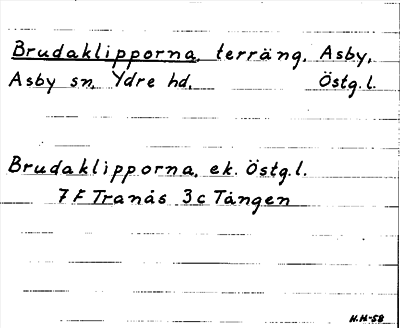 Brudaklipporna, terräng, Asby,
Asby sn, Ydre hd, Östg.l.
Brudaklipporna, ek. Östg.l.
7 F Tranås 3 c Tången
H.H-58